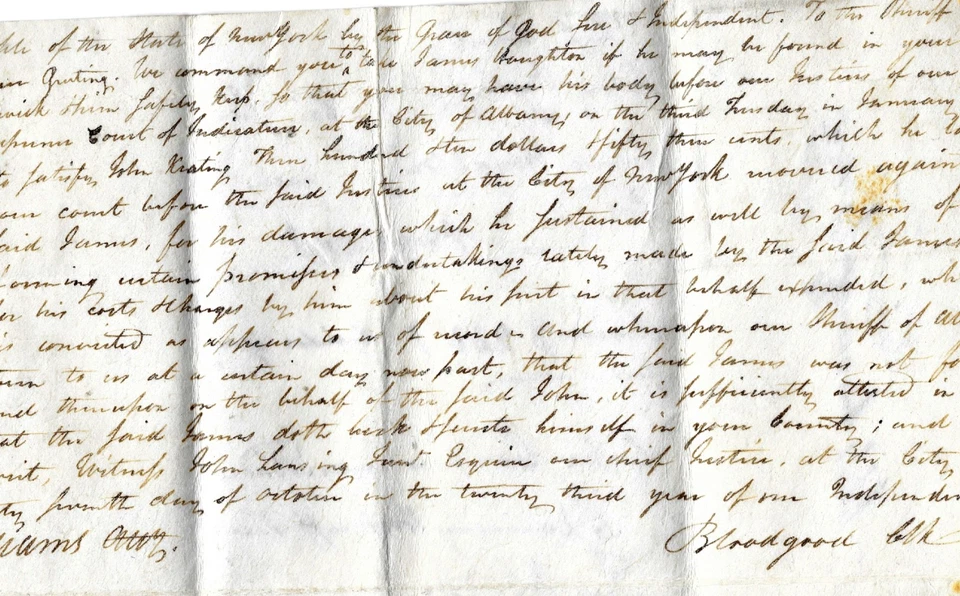 ple of the State of New York by the Grace of God free & Independent. To the Sheriff
in Greeting. We command you to take James Houghton if he may be found in your
wick & him Safely keep, so that you may have his body before our Justices of our
upreme Court of Judicature, at the City of Albany, on the third Tuesday in January
to satisfy John Keating Three hundred & ten dollars & fifty three cents, which he
our court before the said Justices at the City of New York recovered again
said James, for his damages which he sustained as well by means of
forming certain promises & undertakings lately made by the said James
or his costs & charges by him about his suit in that behalf expended, wh
is convicted as appears to us of record and whereupon our Sheriff of Al
turn to us at a certain day now past, that the said James was not fo
nd thereupon on the behalf of the said John, it is sufficiently attested in
at the said James doth lurk & secrete himself in your County; and
writ, Witness John Lansing Junr. Esquire our chief Justice, at the City
ty seventh day of October in the twenty third year of our Independen
iams Atty. Bloodgood Clk